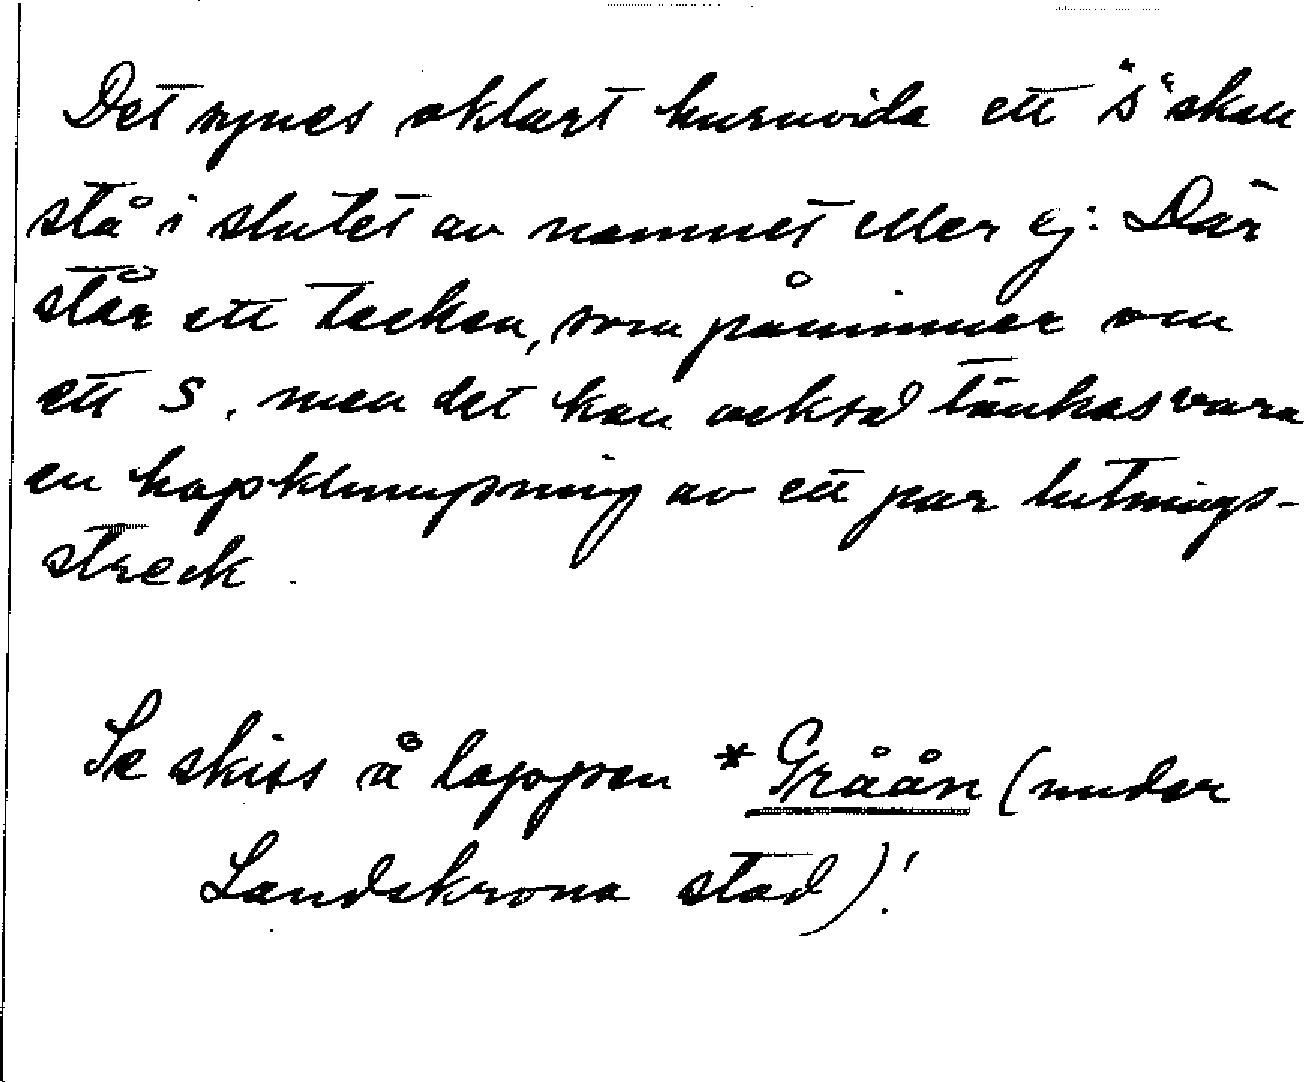 Det synes oklart huruvida ett "s" skall
stå i slutet av namnet eller ej. Där
står ett tecken, som påminner om
ett S, men det kan också tänkas vara
en hopklumpning av ett par lutnings-
streck.
Se skiss å lappen *Gråån (under
Landskrona stad)!